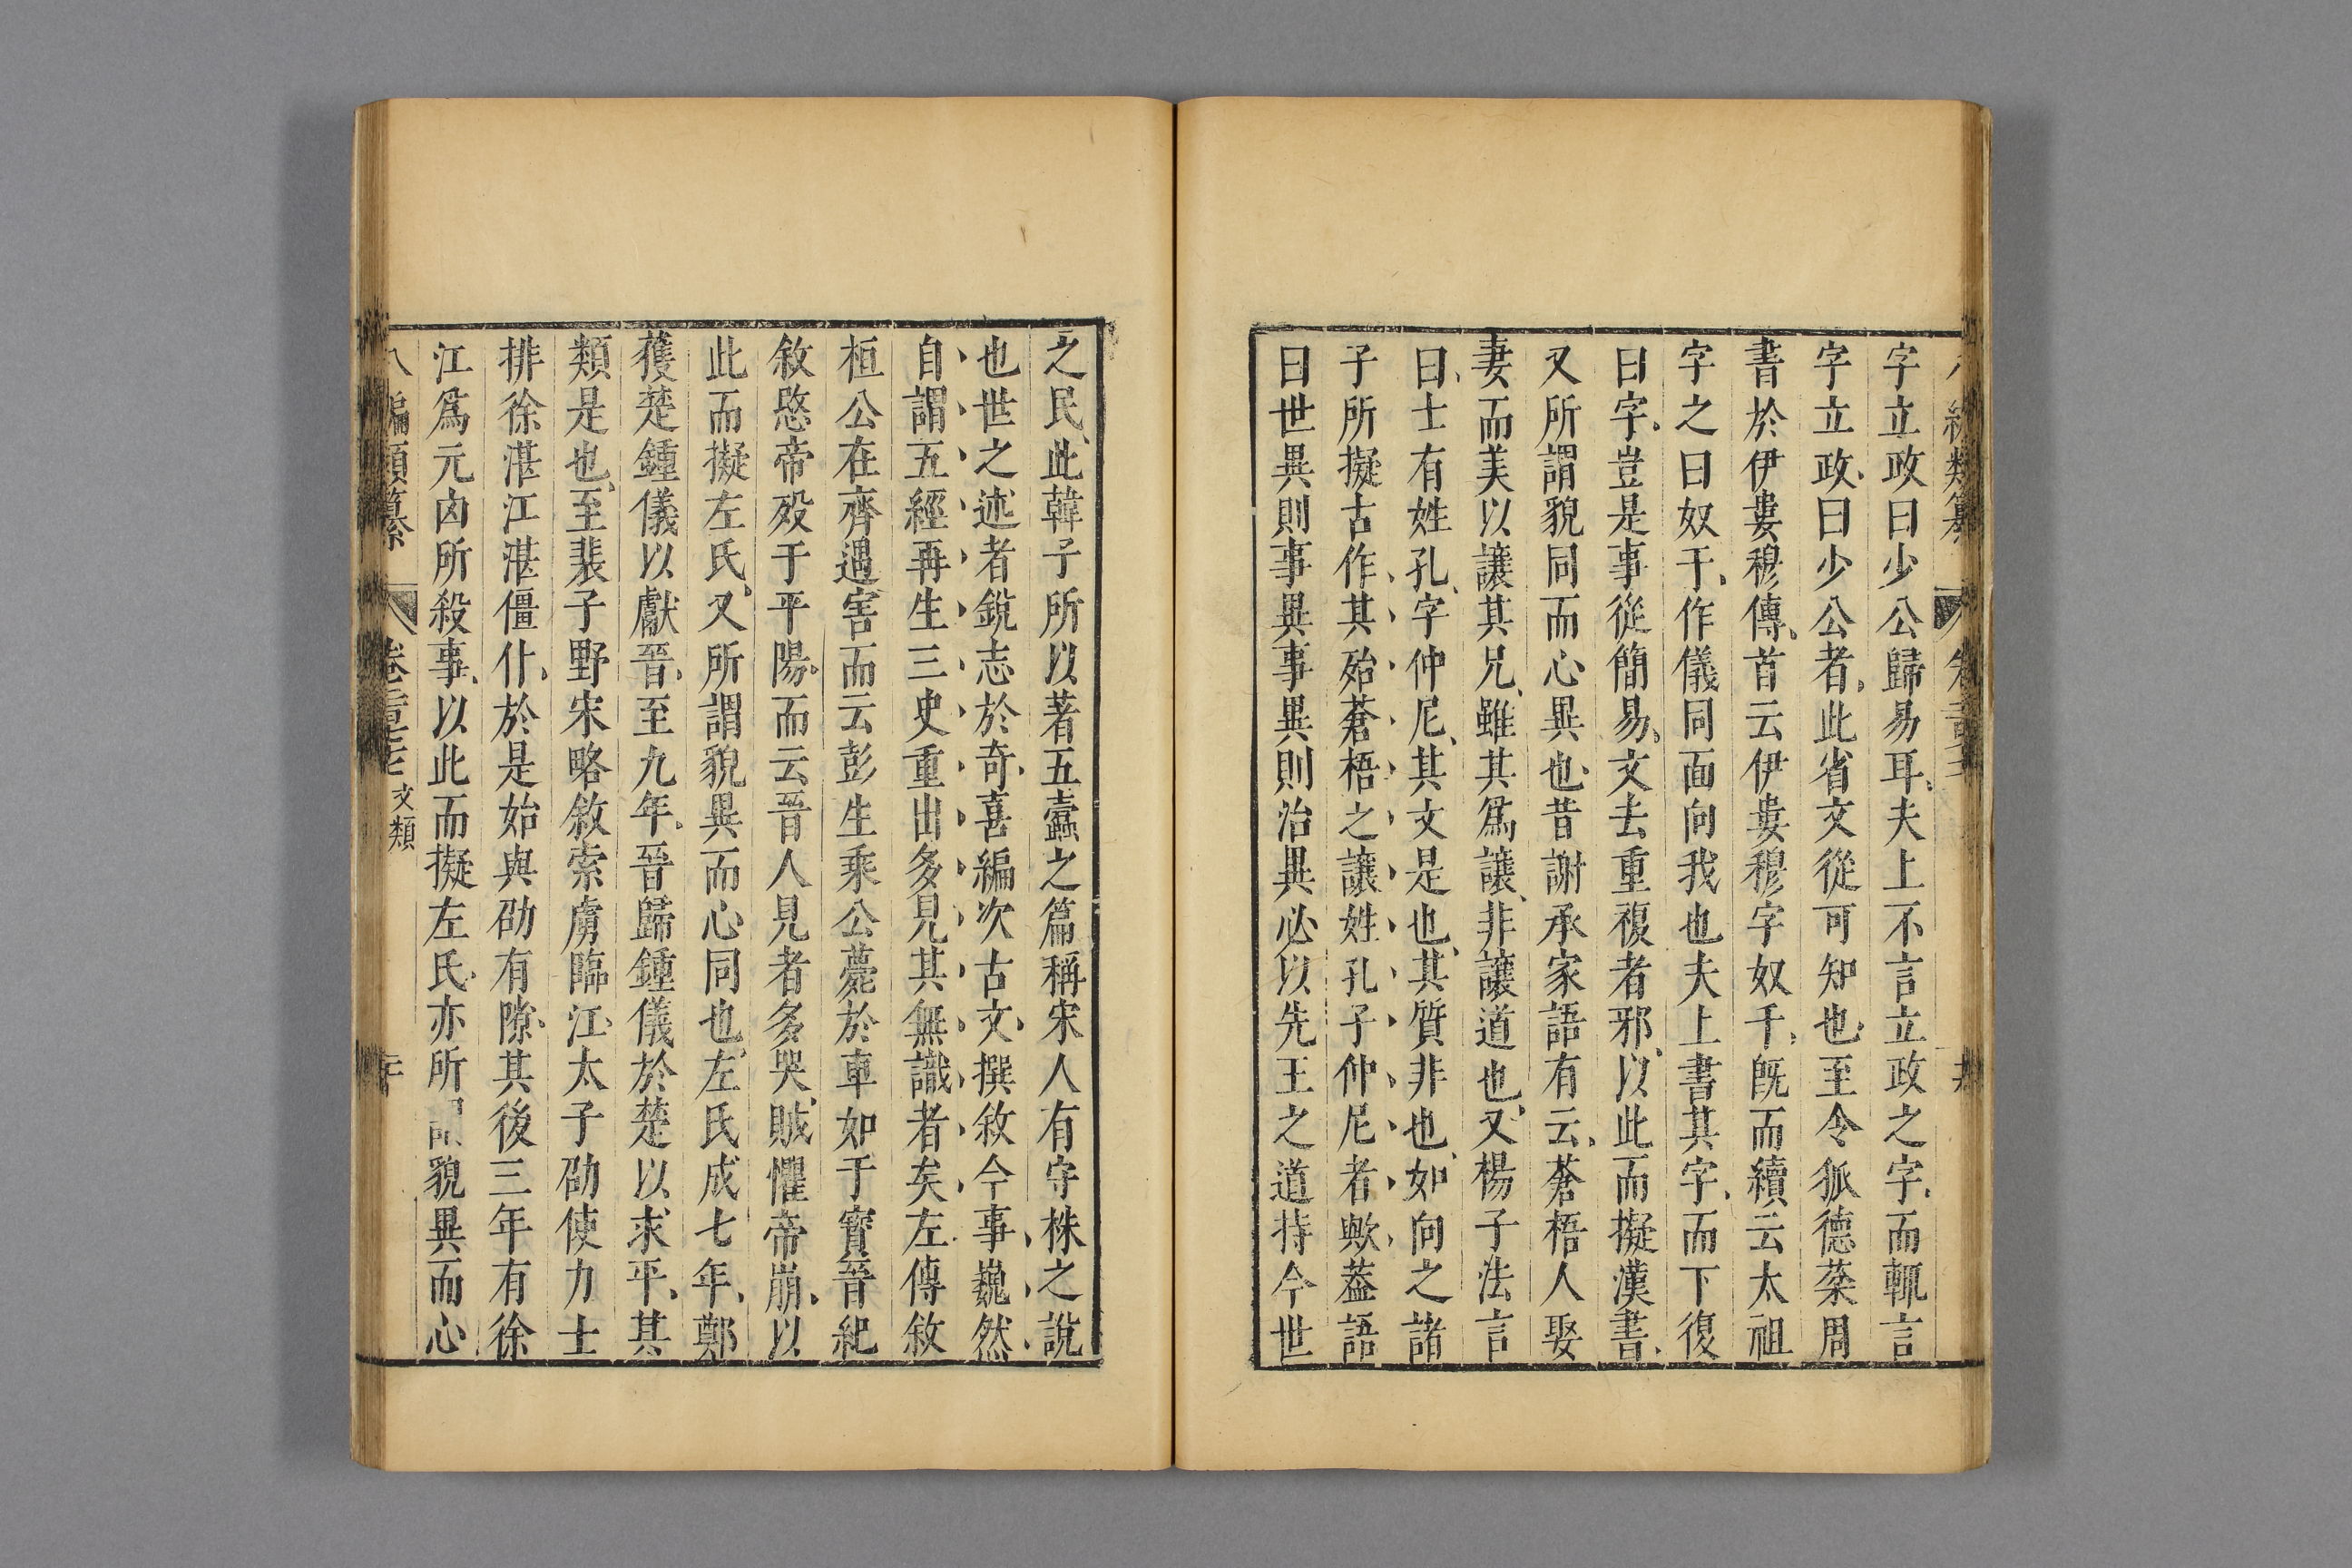 字立政曰少公歸易耳夫上不言立政之字而輒言
字立政曰少公者此省文從可知也至令狐德棻周
書於伊婁穆傳首云伊婁穆字奴干既而續云太祖
字之曰奴干作儀同面向我也夫上書其字而下復
曰字豈是事從簡易文去重複者邪以此而擬漢書
又所謂貌同而心異也昔謝承家語有云蒼梧人娶
妻而美以讓其兄雖其為讓非讓道也又楊子法言
曰士有姓孔字仲尼其文是也其質非也如向之諸
子所擬古作其殆蒼梧之讓姓孔子仲尼者歟葢語
曰世異則事異事異則治異必以先王之道持今世
之民此韓子所以著五蠹之篇稱宋人有守株之說
也世之述者銳志於奇喜編次古文撰敘今事巍然
自謂五經再生三史重出多見其無識者矣左傳敘
桓公在齊遇害而云彭生乘公薨於車如于寶晉紀
敘愍帝歿于平陽而云晉人見者多哭賊懼帝崩以
此而擬左氏又所謂貌異而心同也左氏成七年鄭
獲楚鍾儀以獻晉至九年晉歸鍾儀於楚以求平其
類是也至裴子野宋略敘索虜臨江太子劭使力士
排徐湛江湛僵仆於是始與劭有隙其後三年有徐
江為元凶所殺事以此而擬左氏亦所謂貌異而心
八編類纂 卷 文類